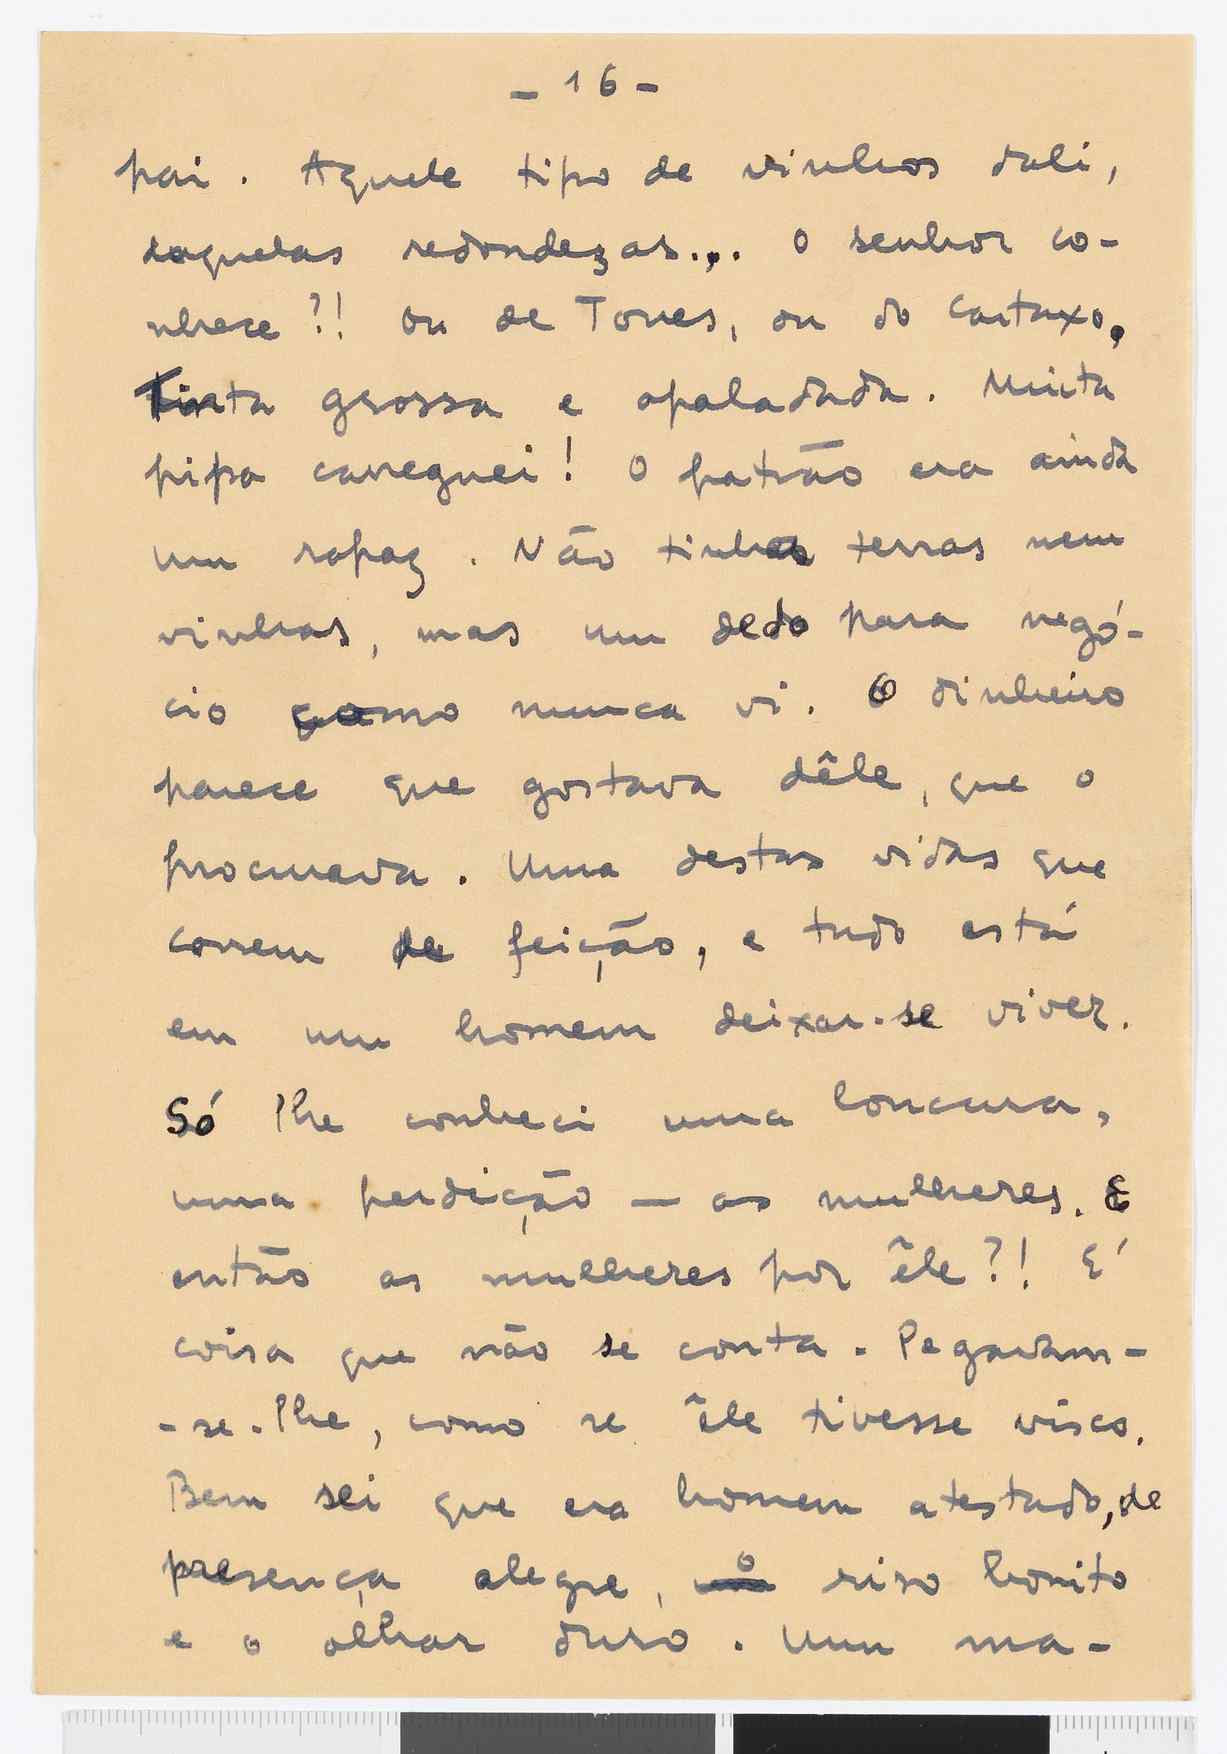 - 16 -
pai. Aquele tipo de vinhos dali,
daquelas redondezas... O senhor co-
nhece?! Ou de Torres, ou do Cartaxo,
Tinta grossa e apaladada. Muita
pipa carreguei! O patrão era ainda
um rapaz. Não tinha terras nem
vinhas, mas um dedo para negó-
cio como nunca vi. O dinheiro
parece que gostava dêle, que o
procurava. Uma destas vidas que
correm de feição, e tudo está
em um homem deixar-se viver.
Só lhe conheci uma loucura,
uma perdição — as mulheres. E
então as mulheres por êle?! É
coisa que não se conta. Pegavam-
-se-lhe, como se êle tivesse visco.
Bem sei que era homem atestado, de
presença alegre, o riso bonito
e o olhar duro. Um ma-